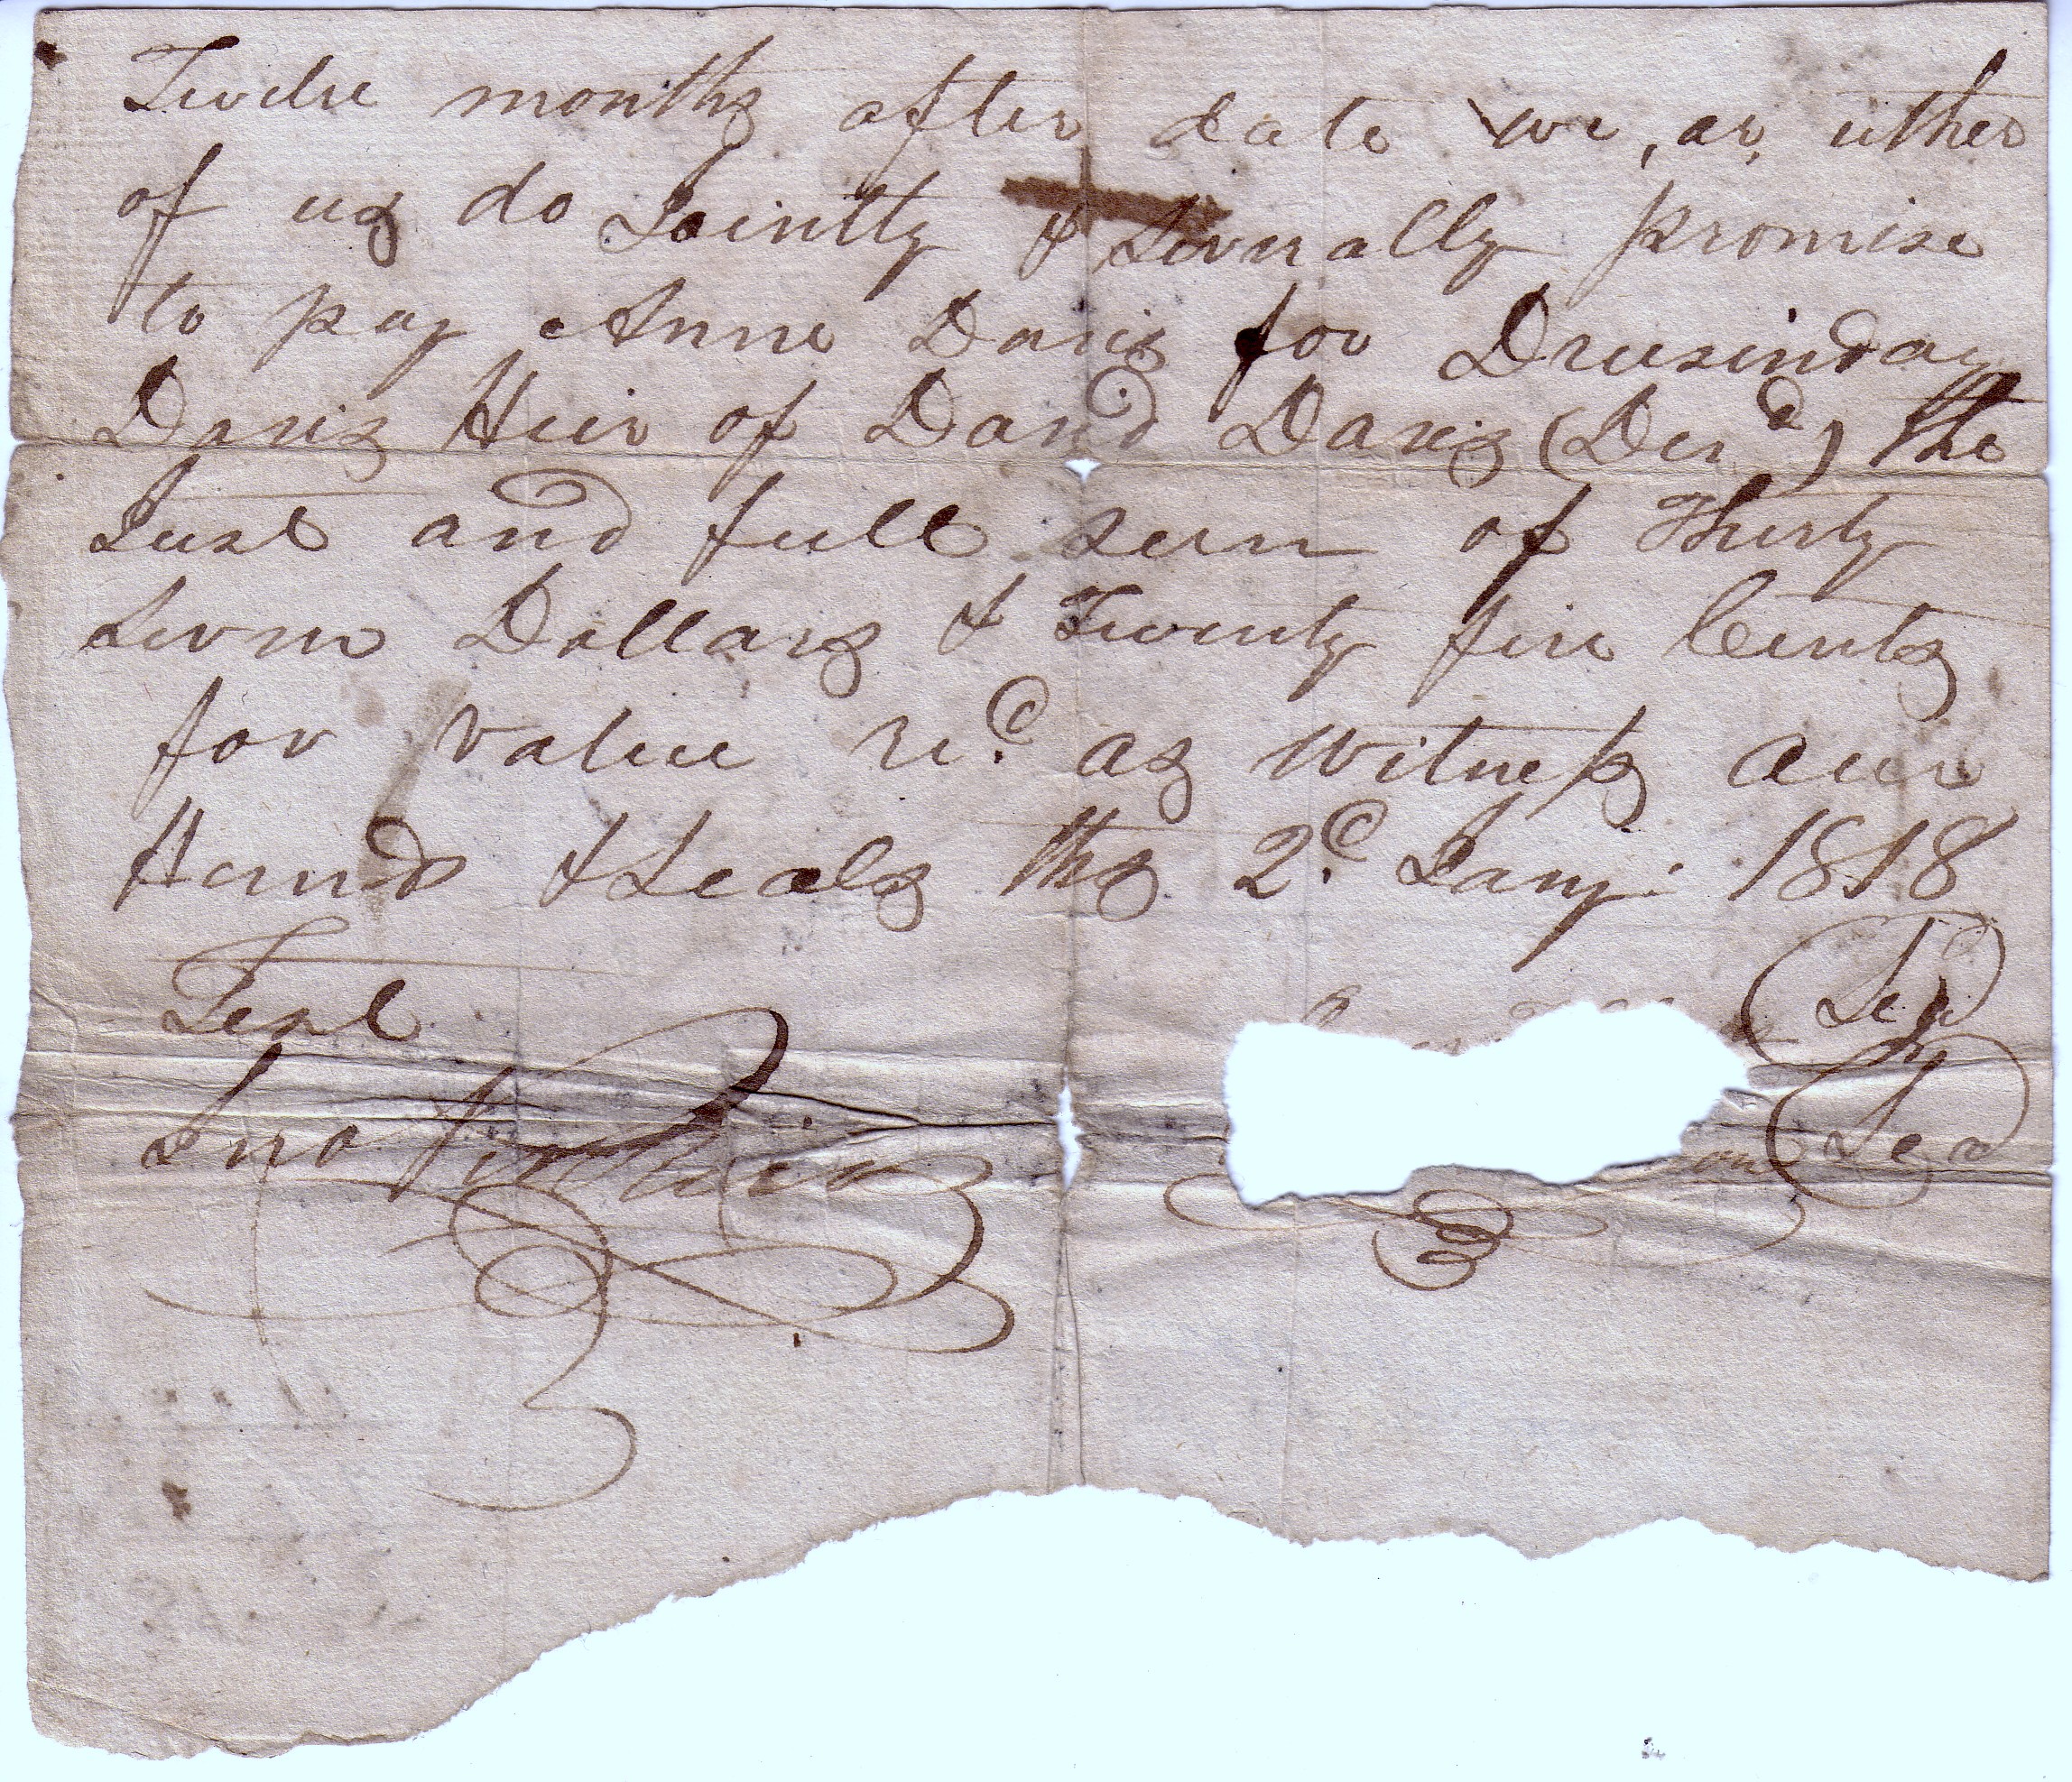 Twelve months after date we, or, either
of us do Jointly & Severally promise
to pay Anne Davis for Drusinda
Davis Heir of David Davis (Decd) the
Just and full sum of Thirty
Seven Dollars & Twenty five Cents
for value recd. as witness our
Hands & Seals this 2d. Jany. 1818
Test
Jno